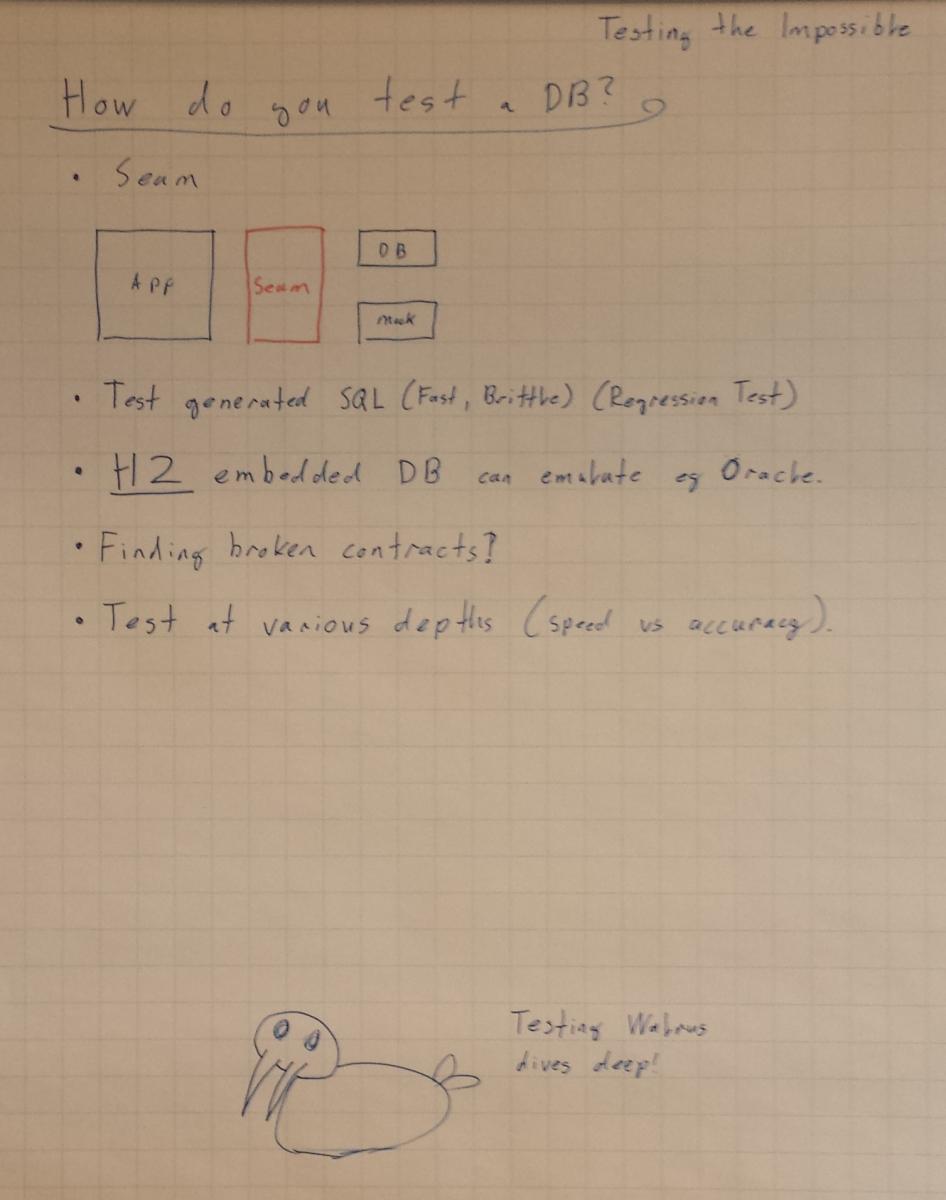 Testing the Impossible
How do you test a DB?
• Seam
App
Seam
DB
Mock
• Test generated SQL (Fast, Brittle) (Regression Test)
• H2 embedded DB can emulate eg Oracle.
• Finding broken contracts?
• Test at various depths (speed vs accuracy).
Testing Walrus
dives deep!